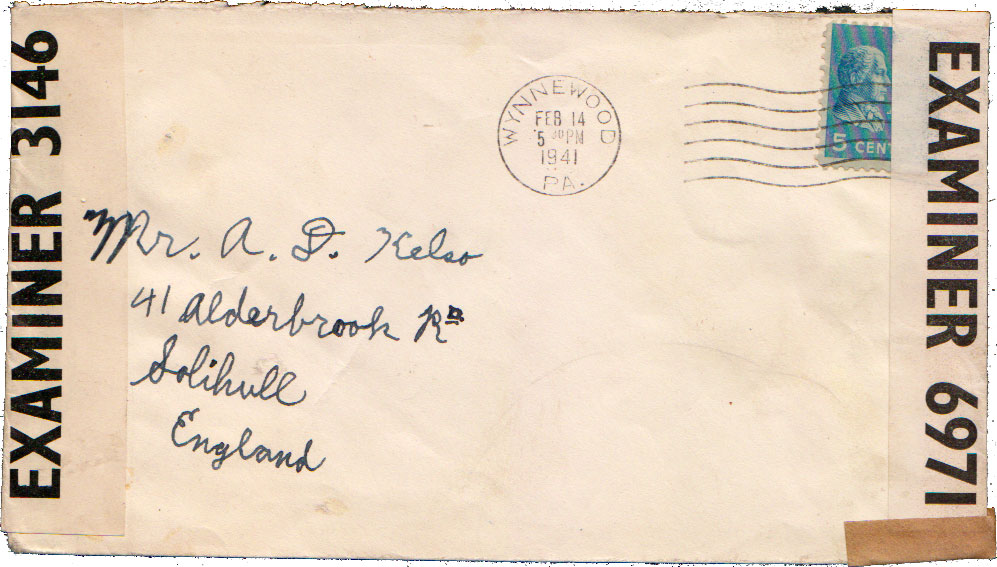 EXAMINER 3146
WYNNEWOOD
FEB 14
5 30 PM
1941
PA.
5 CENT
EXAMINER 6971
Mr. A. D. Kelso
41 Alderbrook Rd
Solihull
England